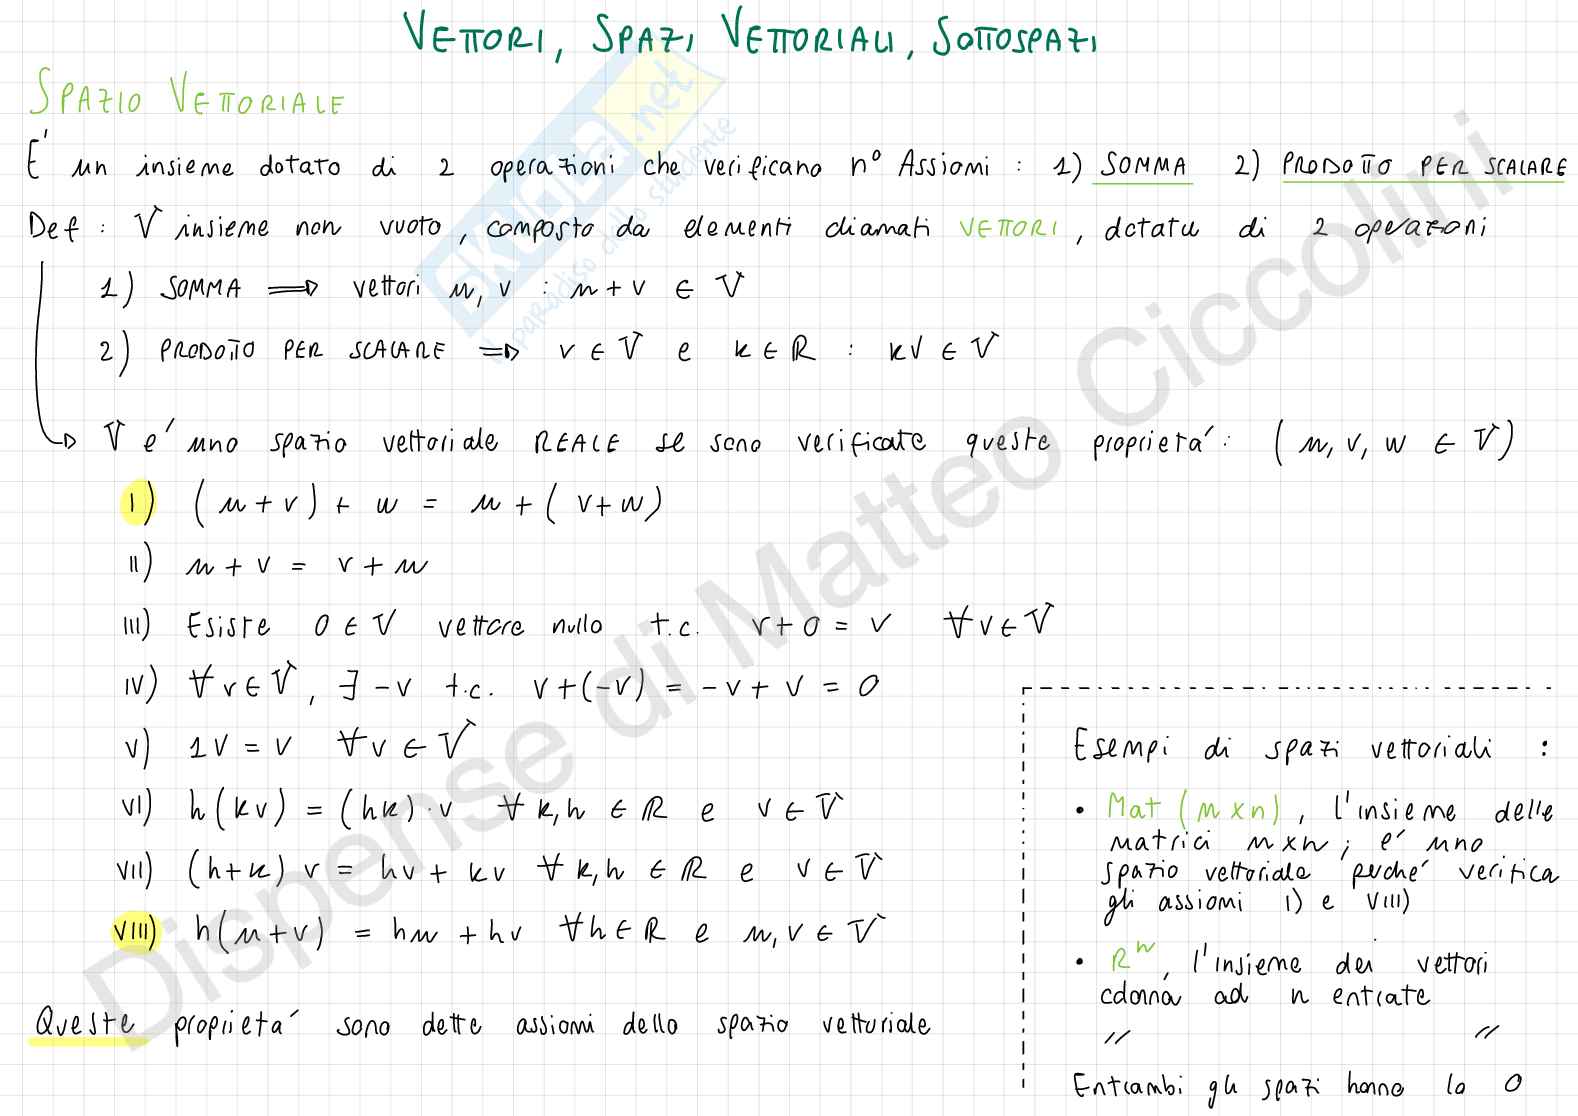 VETTORI, SPAZI VETTORIALI, SOTTOSPAZI
SPAZIO VETTORIALE
E' un insieme dotato di 2 operazioni che verificano n° Assiomi : 1) SOMMA 2) PRODOTTO PER SCALARE
Def : V insieme non vuoto, composto da elementi chiamati VETTORI, dotato di 2 operazioni
1) SOMMA ⟹ vettori u, v : u + v ∈ V
2) PRODOTTO PER SCALARE ⟹ v ∈ V e k ∈ R : kv ∈ V
V e' uno spazio vettoriale REALE se sono verificate queste proprieta' : ( u, v, w ∈ V )
I) ( u + v ) + w = u + ( v + w )
II) u + v = v + u
III) Esiste 0 ∈ V vettore nullo t.c. v + 0 = v ∀ v ∈ V
IV) ∀ v ∈ V, ∃ -v t.c. v + (-v) = -v + v = 0
V) 1v = v ∀ v ∈ V
VI) h(kv) = (hk) · v ∀ k, h ∈ R e v ∈ V
VII) (h+k) v = hv + kv ∀ k, h ∈ R e v ∈ V
VIII) h(u+v) = hu + hv ∀ h ∈ R e u, v ∈ V
Queste proprieta' sono dette assiomi dello spazio vettoriale
Esempi di spazi vettoriali :
• Mat (m x n), l'insieme delle
matrici m x n ; e' uno
spazio vettoriale perche' verifica
gli assiomi I) e VIII)
• Rⁿ, l'insieme dei vettori
colonna ad n entrate
// //
Entrambi gli spazi hanno lo 0
skuola.net
il paradiso dello studente
Dispense di Matteo Ciccolini